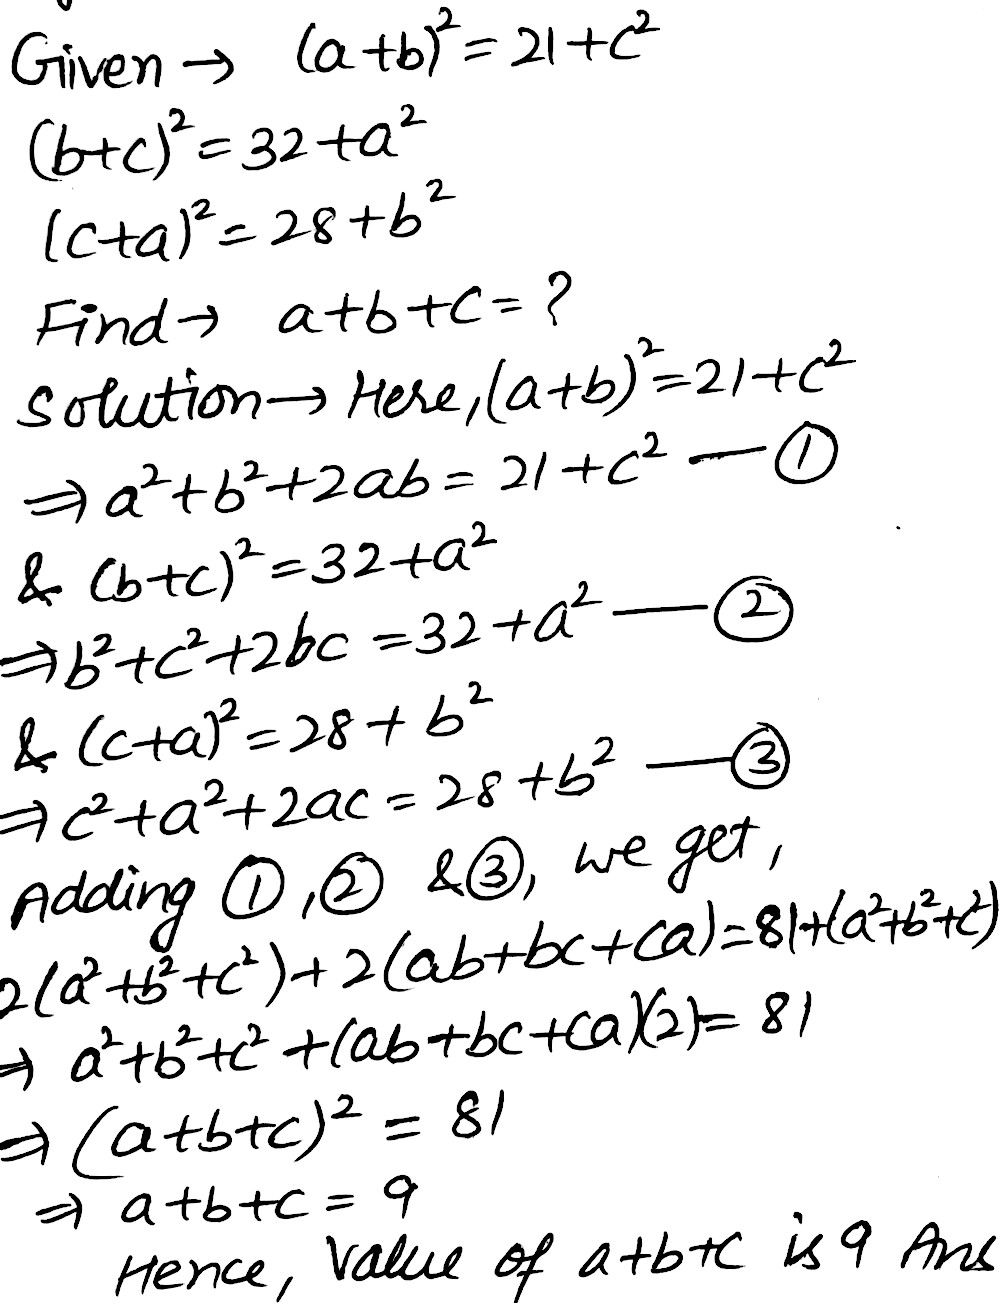 Given → (a+b)² = 21+c²
(b+c)² = 32+a²
(c+a)² = 28+b²
Find → a+b+c = ?
Solution → Here, (a+b)² = 21+c²
⇒ a²+b²+2ab = 21+c² — ①
& (b+c)² = 32+a²
⇒ b²+c²+2bc = 32+a² — ②
& (c+a)² = 28+b²
⇒ c²+a²+2ac = 28+b² — ③
Adding ①, ② & ③, we get,
2(a²+b²+c²)+2(ab+bc+ca) = 81+(a²+b²+c²)
⇒ a²+b²+c²+(ab+bc+ca)(2) = 81
⇒ (a+b+c)² = 81
⇒ a+b+c = 9
Hence, Value of a+b+c is 9 Ans